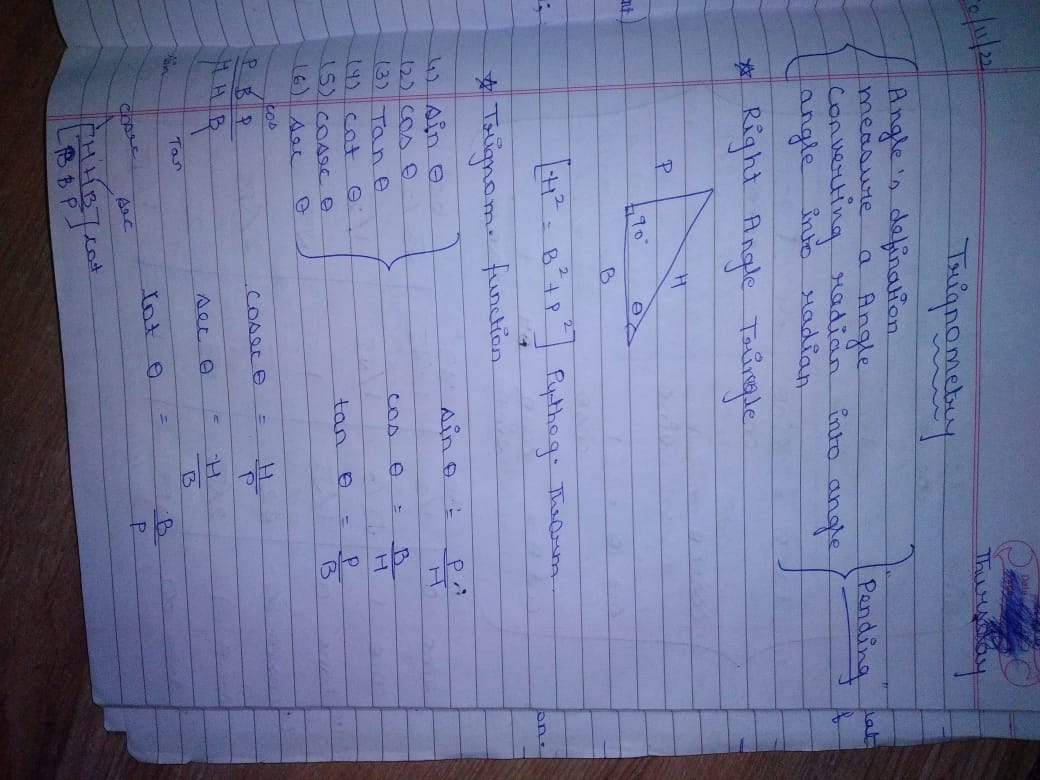 0/11/22
Date
Thursday
Trignometry
Angle's defination
measure a Angle
Converting radian into angle
angle into radian
"Pending"
☆ Right Angle Tringle
P
H
90°
θ
B
[H² = B² + P²] Pythog. Thearm.
☆ Trignom. function
(1) sin θ
(2) cos θ
(3) Tan θ
(4) cot θ
(5) cosec θ
(6) sec θ
sin θ = P/H
cos θ = B/H
tan θ = P/B
cosec θ = H/P
sec θ = H/B
cot θ = B/P
cos
P B P
H H B
sin
Tan
cosec
sec
[H H B] cot
B P
on.